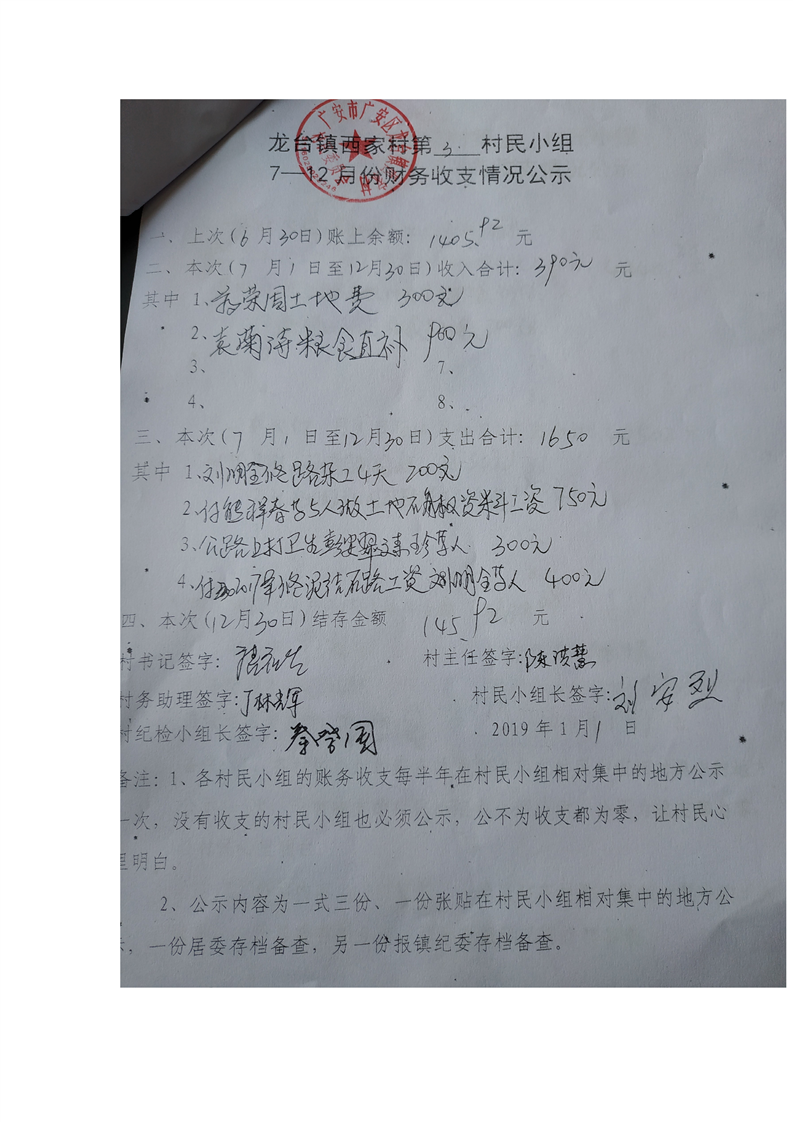 龙台镇西家村第3村民小组
7—12月份财务收支情况公示
一、上次(6月30日)账上余额: 1405.92 元
二、本次(7月1日至12月30日)收入合计: 390元 元
其中 1、蒋荣周土地费 300元
2、袁菊诗粮食直补 90元
3、 7、
4、 8、
三、本次(7月1日至12月30日)支出合计: 1650 元
其中 1、刘明全修路杂工4天 200元
2、付熊祥春等5人做土地确权资料工资 750元
3、公路上打卫生 等人 300元
4、付 修泥结石路工资刘明全等人 400元
四、本次(12月30日)结存金额 145.92 元
村书记签字: 村主任签字:陈洪慧
村务助理签字:丁林辉 村民小组长签字:刘安烈
村纪检小组长签字:秦学周 2019年1月1日
备注: 1、各村民小组的账务收支每半年在村民小组相对集中的地方公示
一次, 没有收支的村民小组也必须公示, 公不为收支都为零, 让村民心
里明白。
2、公示内容为一式三份、一份张贴在村民小组相对集中的地方公
示, 一份居委存档备查, 另一份报镇纪委存档备查。